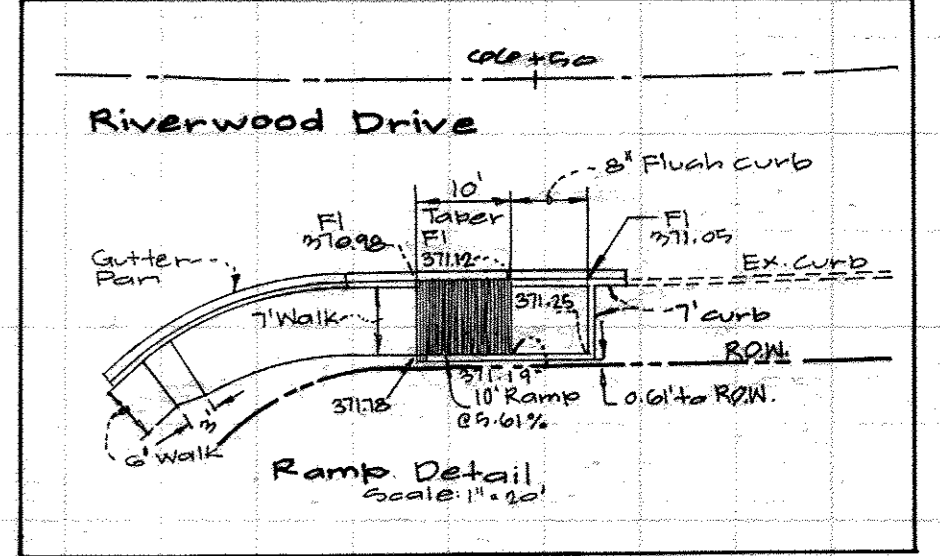 +50
Riverwood Drive
8" Flush curb
10'
Taper
Fl
370.98
Fl
371.12
Fl
371.05
Ex. Curb
Gutter
Pan
7' Walk
371.25
7' curb
R.O.W.
371.19
371.78
10' Ramp
@5.61%
0.61' to R.O.W.
3'
6' Walk
Ramp Detail
Scale: 1" = 20'